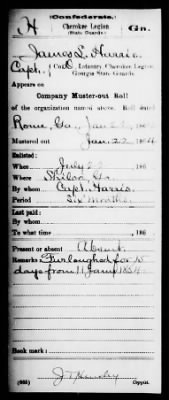 Confederate.
H Cherokee Legion Ga.
(State Guards)
James L. Harris
Capt., Co. C, Infantry, Cherokee Legion,
Georgia State Guards.
Appears on
Company Muster-out Roll
of the organization named above. Roll dated
Rome, Ga., Jan 186
Mustered out Jan. 27 1864
Enlisted:
When July 186
Where Shiloh, Ga.
By whom Capt. Harris.
Period Six months.
Last paid:
By whom
To what time 186
Present or absent Absent.
Remarks: Furloughed for 15
days from 11 Jany 1864.
Book mark:
J T
Copyist.